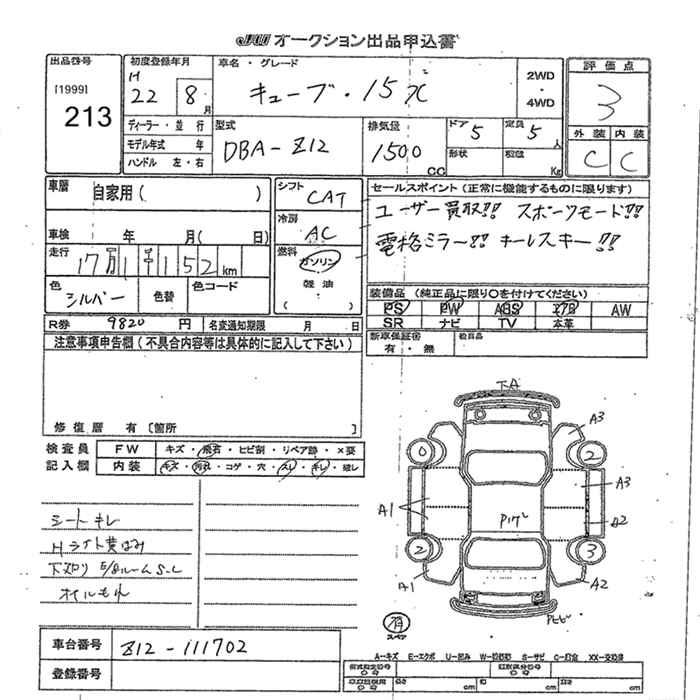 JU オークション出品申込書
出品番号
[1999]
213
初度登録年月
H
22 8月
車名・グレード
キューブ・15X
2WD
・
4WD
評価点
3
外装 内装
C C
ディーラー・並行
モデル年式 年
ハンドル 左・右
型式
DBA-Z12
排気量
1500
CC
ドア 5
定員 5人
形状
積載 Kg
車歴 自家用( )
車検 年 月( 日)
走行 17万1千152km
色 シルバー 色替 色コード
シフト CAT
冷房 AC
燃料 ガソリン
軽油
( )
セールスポイント(正常に機能するものに限ります)
ユーザー買取!! スポーツモード!!
電格ミラー!! キーレスキー!!
装備品(純正品に限り〇を付けてください)
PS PW ABS エアB AW
SR ナビ TV 本革
新車保証書
有・無
R券 9820 円 名変通知期限 月 日
注意事項申告欄(不具合内容等は具体的に記入して下さい)
修復歴 有〔箇所
検査員
記入欄
FW キズ・飛石・ヒビ割・リペア跡・×要
内装 キズ・汚れ・コゲ・穴・スレ・キレ・破レ
シートキレ
Hライト黄ばみ
オイルもれ
下A
A3
0 2
A3
A1
A2
2 3
A1 A2
有
スペア
車台番号 Z12-111702
登録番号
A-キズ E-エクボ U-凹み S-サビ C-腐食 XX-交換済
cm cm